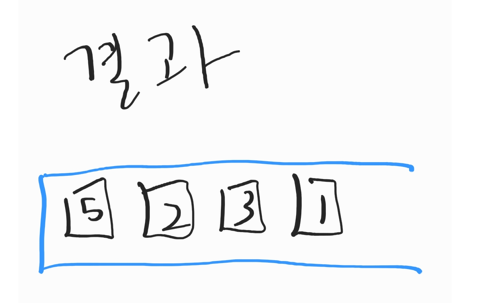 결과
5 2 3 1